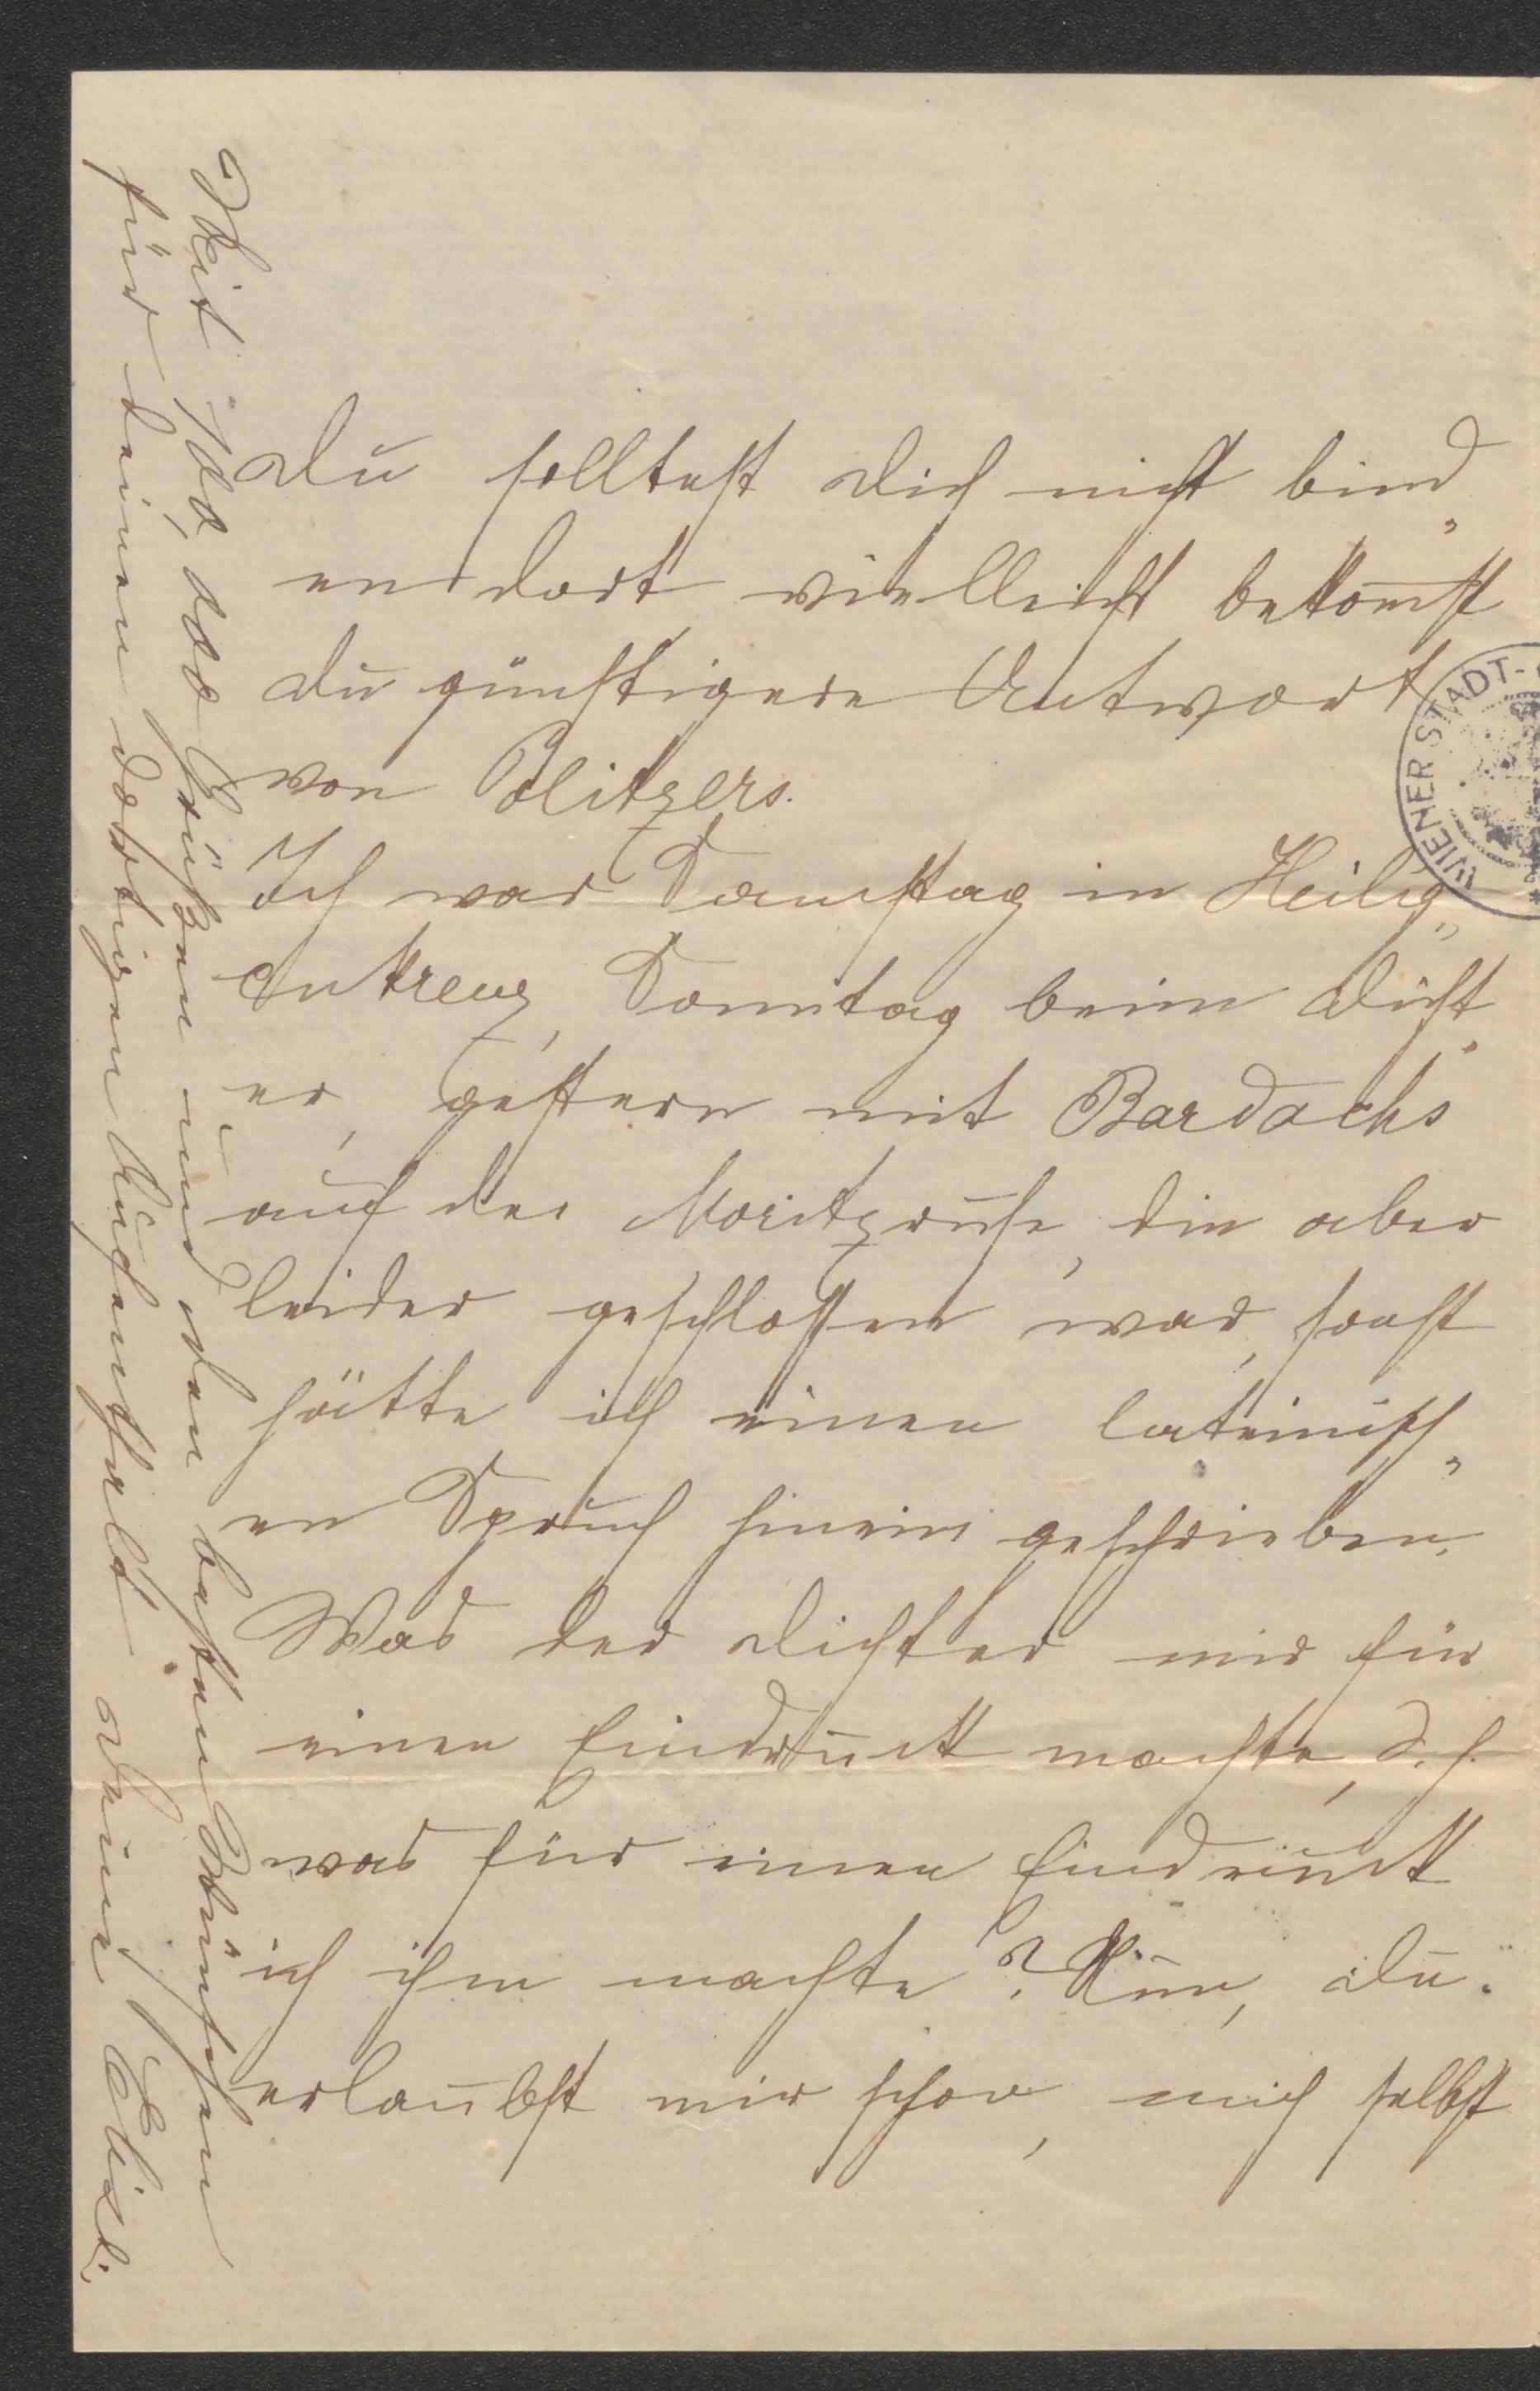 Du solltest Dich nicht bind„
en dort vielleicht bekom̅st
Du günstigere Antwort
von Politzers.
Ich war Samstag in Heilig„
enkreuz, Sonntag beim Dicht„
er, gestern mit Bardachs
auf der Moritzruhe, die aber
leider geschlossen war, sonst
hätte ich einen lateinisch„
en Spruch hinein geschrieben.
Was der Dichter mir für
einen Eindruck machte, d. h.
was für einen Eindruck
ich ihm machte? Nun, Du
erlaubst mir schon, mich selbst
Mit 100,000 Grüßen und den besten Wünschen
für deinen dortigen Aufenthalt Deine
WIENER STADT-